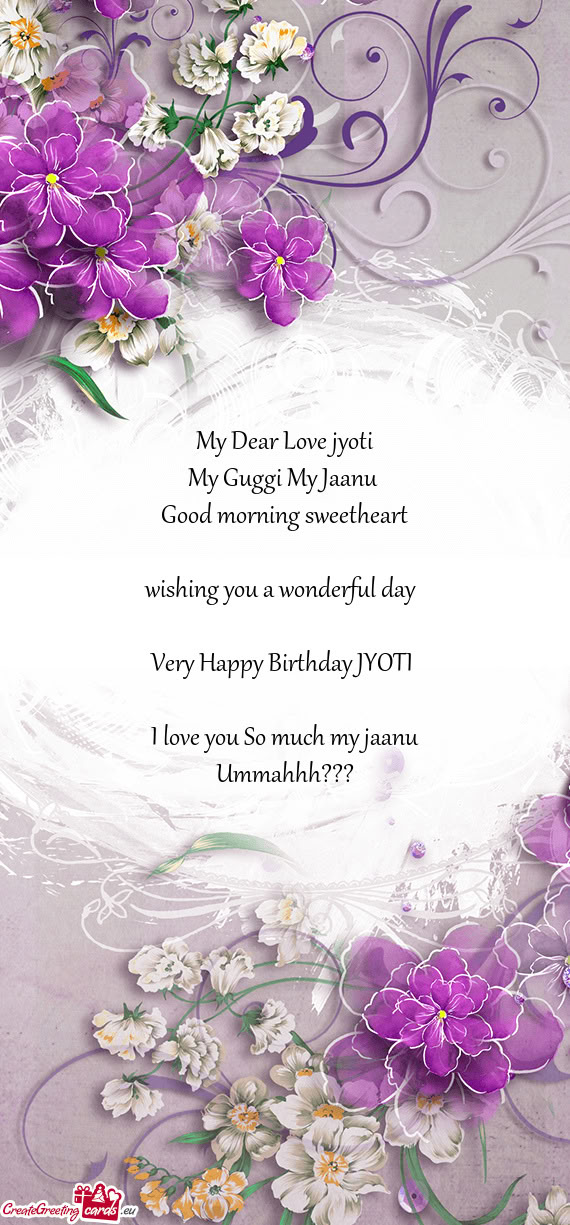 My Dear Love jyoti
My Guggi My Jaanu
Good morning sweetheart
wishing you a wonderful day
Very Happy Birthday JYOTI
I love you So much my jaanu
Ummahhh???
CreateGreeting cards .eu